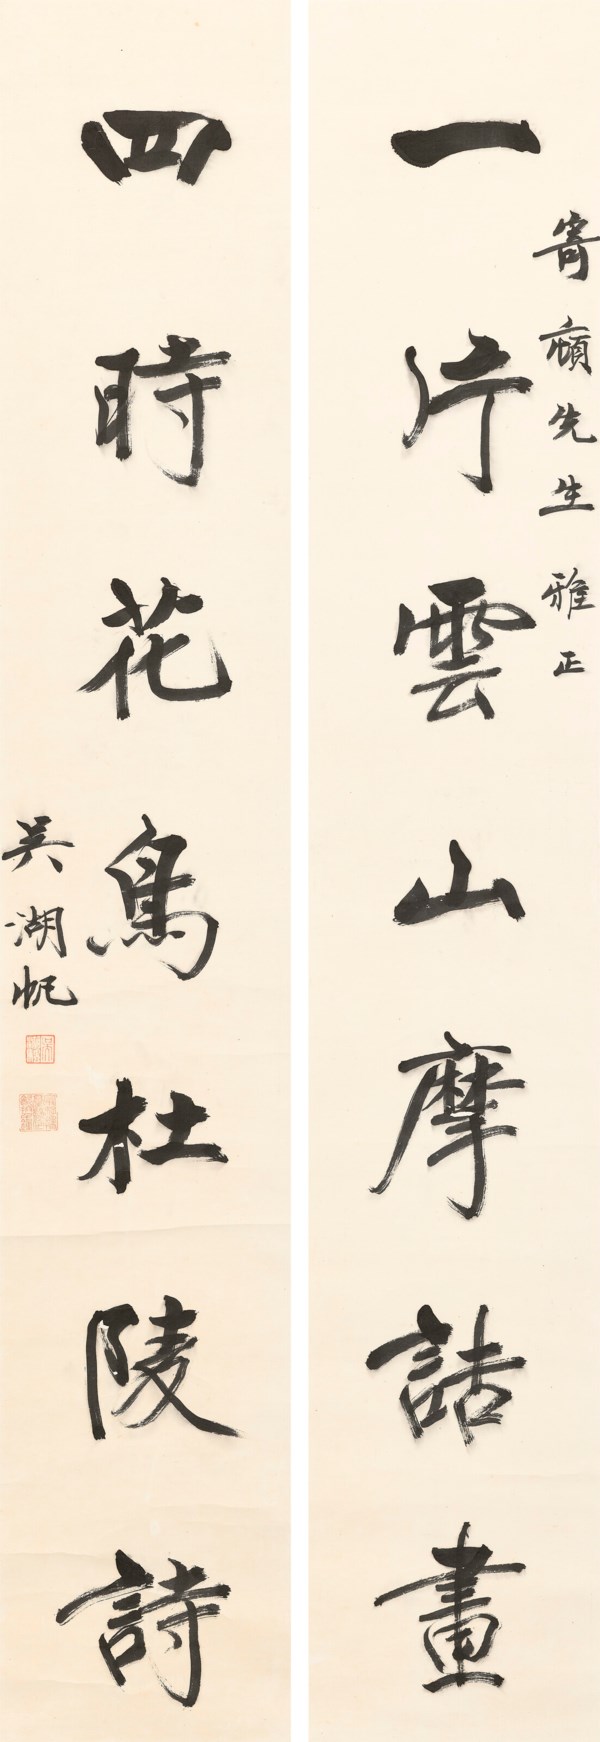 寄廎先生雅正
一片雲山摩詰畫
四時花鳥杜陵詩
吳湖帆